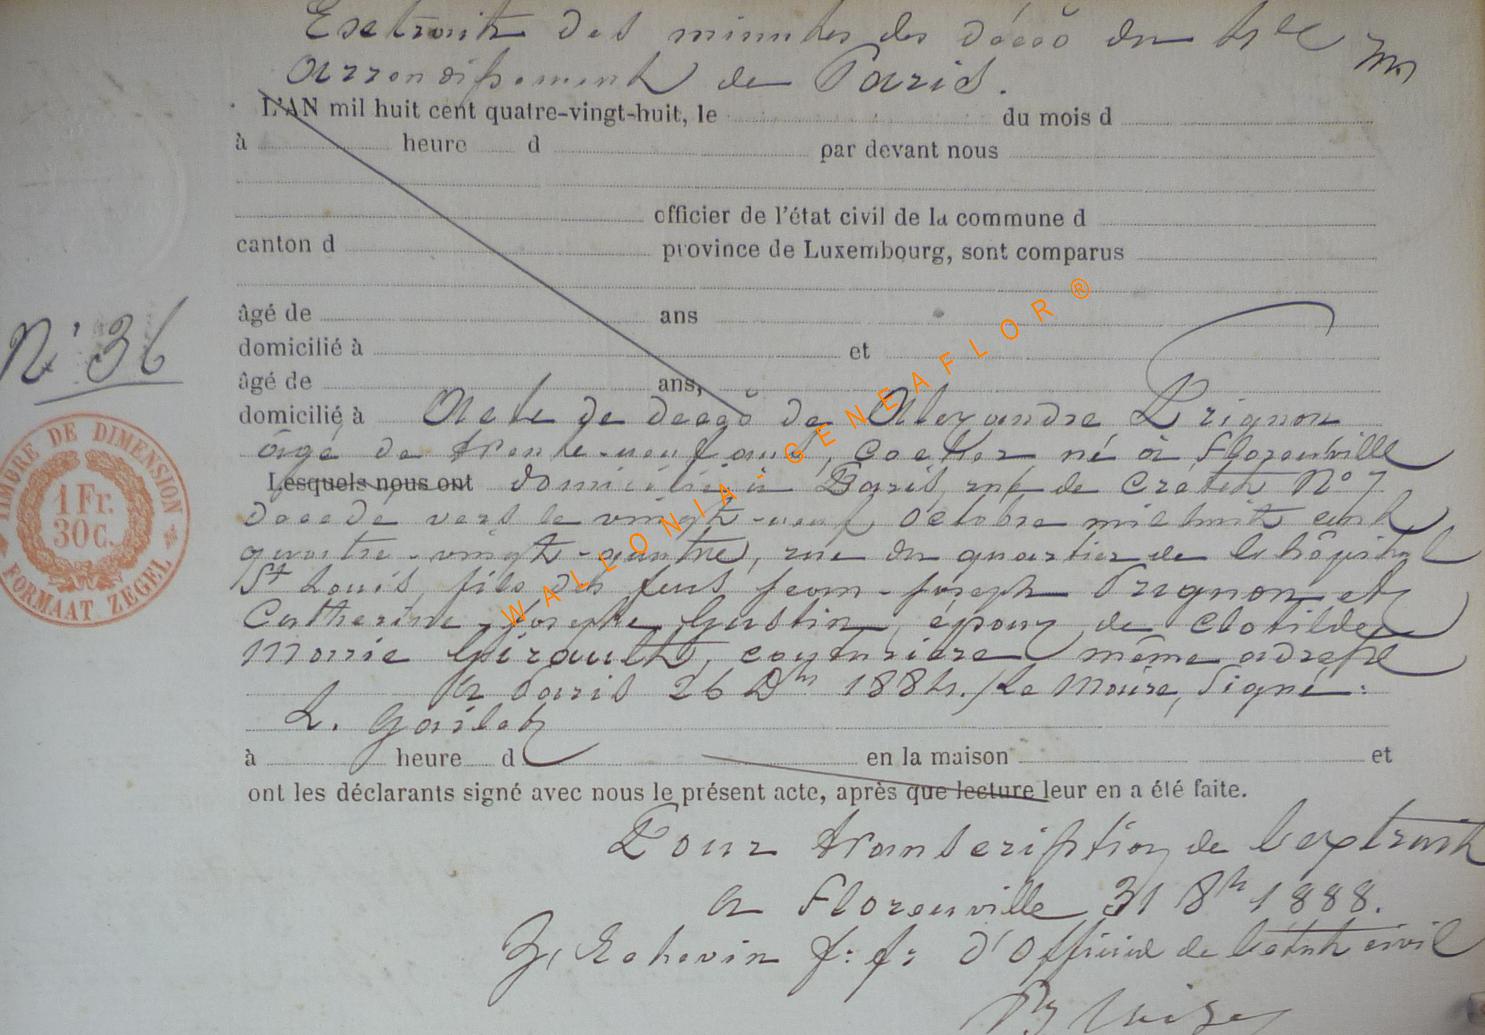 Extrait des minutes des décès du
arrondissement de Paris.
L'AN mil huit cent quatre-vingt-huit, le du mois d
à heure d par devant nous
officier de l'état civil de la commune d
canton d province de Luxembourg, sont comparus
N° 36
âgé de ans
domicilié à et
âgé de ans,
domicilié à Acte de décès de Alexandre Prignon
âgé de trente-neuf ans, cocher né à Florenville
Lesquels nous ont domicilié à Paris, rue de N° 7
décédé vers le vingt-neuf octobre mil huit cent
quatre-vingt-quatre, rue du quartier de l'hôpital
St Louis, fils de feus Jean-Joseph Prignon et
Catherine-Josèphe Gustin, époux de Clotilde
Marie Girault, couturière même adresse
à Paris 26 1884. Le Maire, Signé:
L.
à heure d en la maison et
ont les déclarants signé avec nous le présent acte, après que lecture leur en a été faite.
Pour transcription de l'extrait
a Florenville 31 8bre 1888.
Echevin f: f: d'Officier de l'état civil
TIMBRE DE DIMENSION
1 Fr.
30 C.
FORMAAT ZEGEL
WALLONIA - GENEAFLOR ®